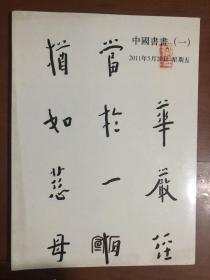 中國書畫（一）
2011年5月20日 星期五
華嚴經
當於一
猶如慈母